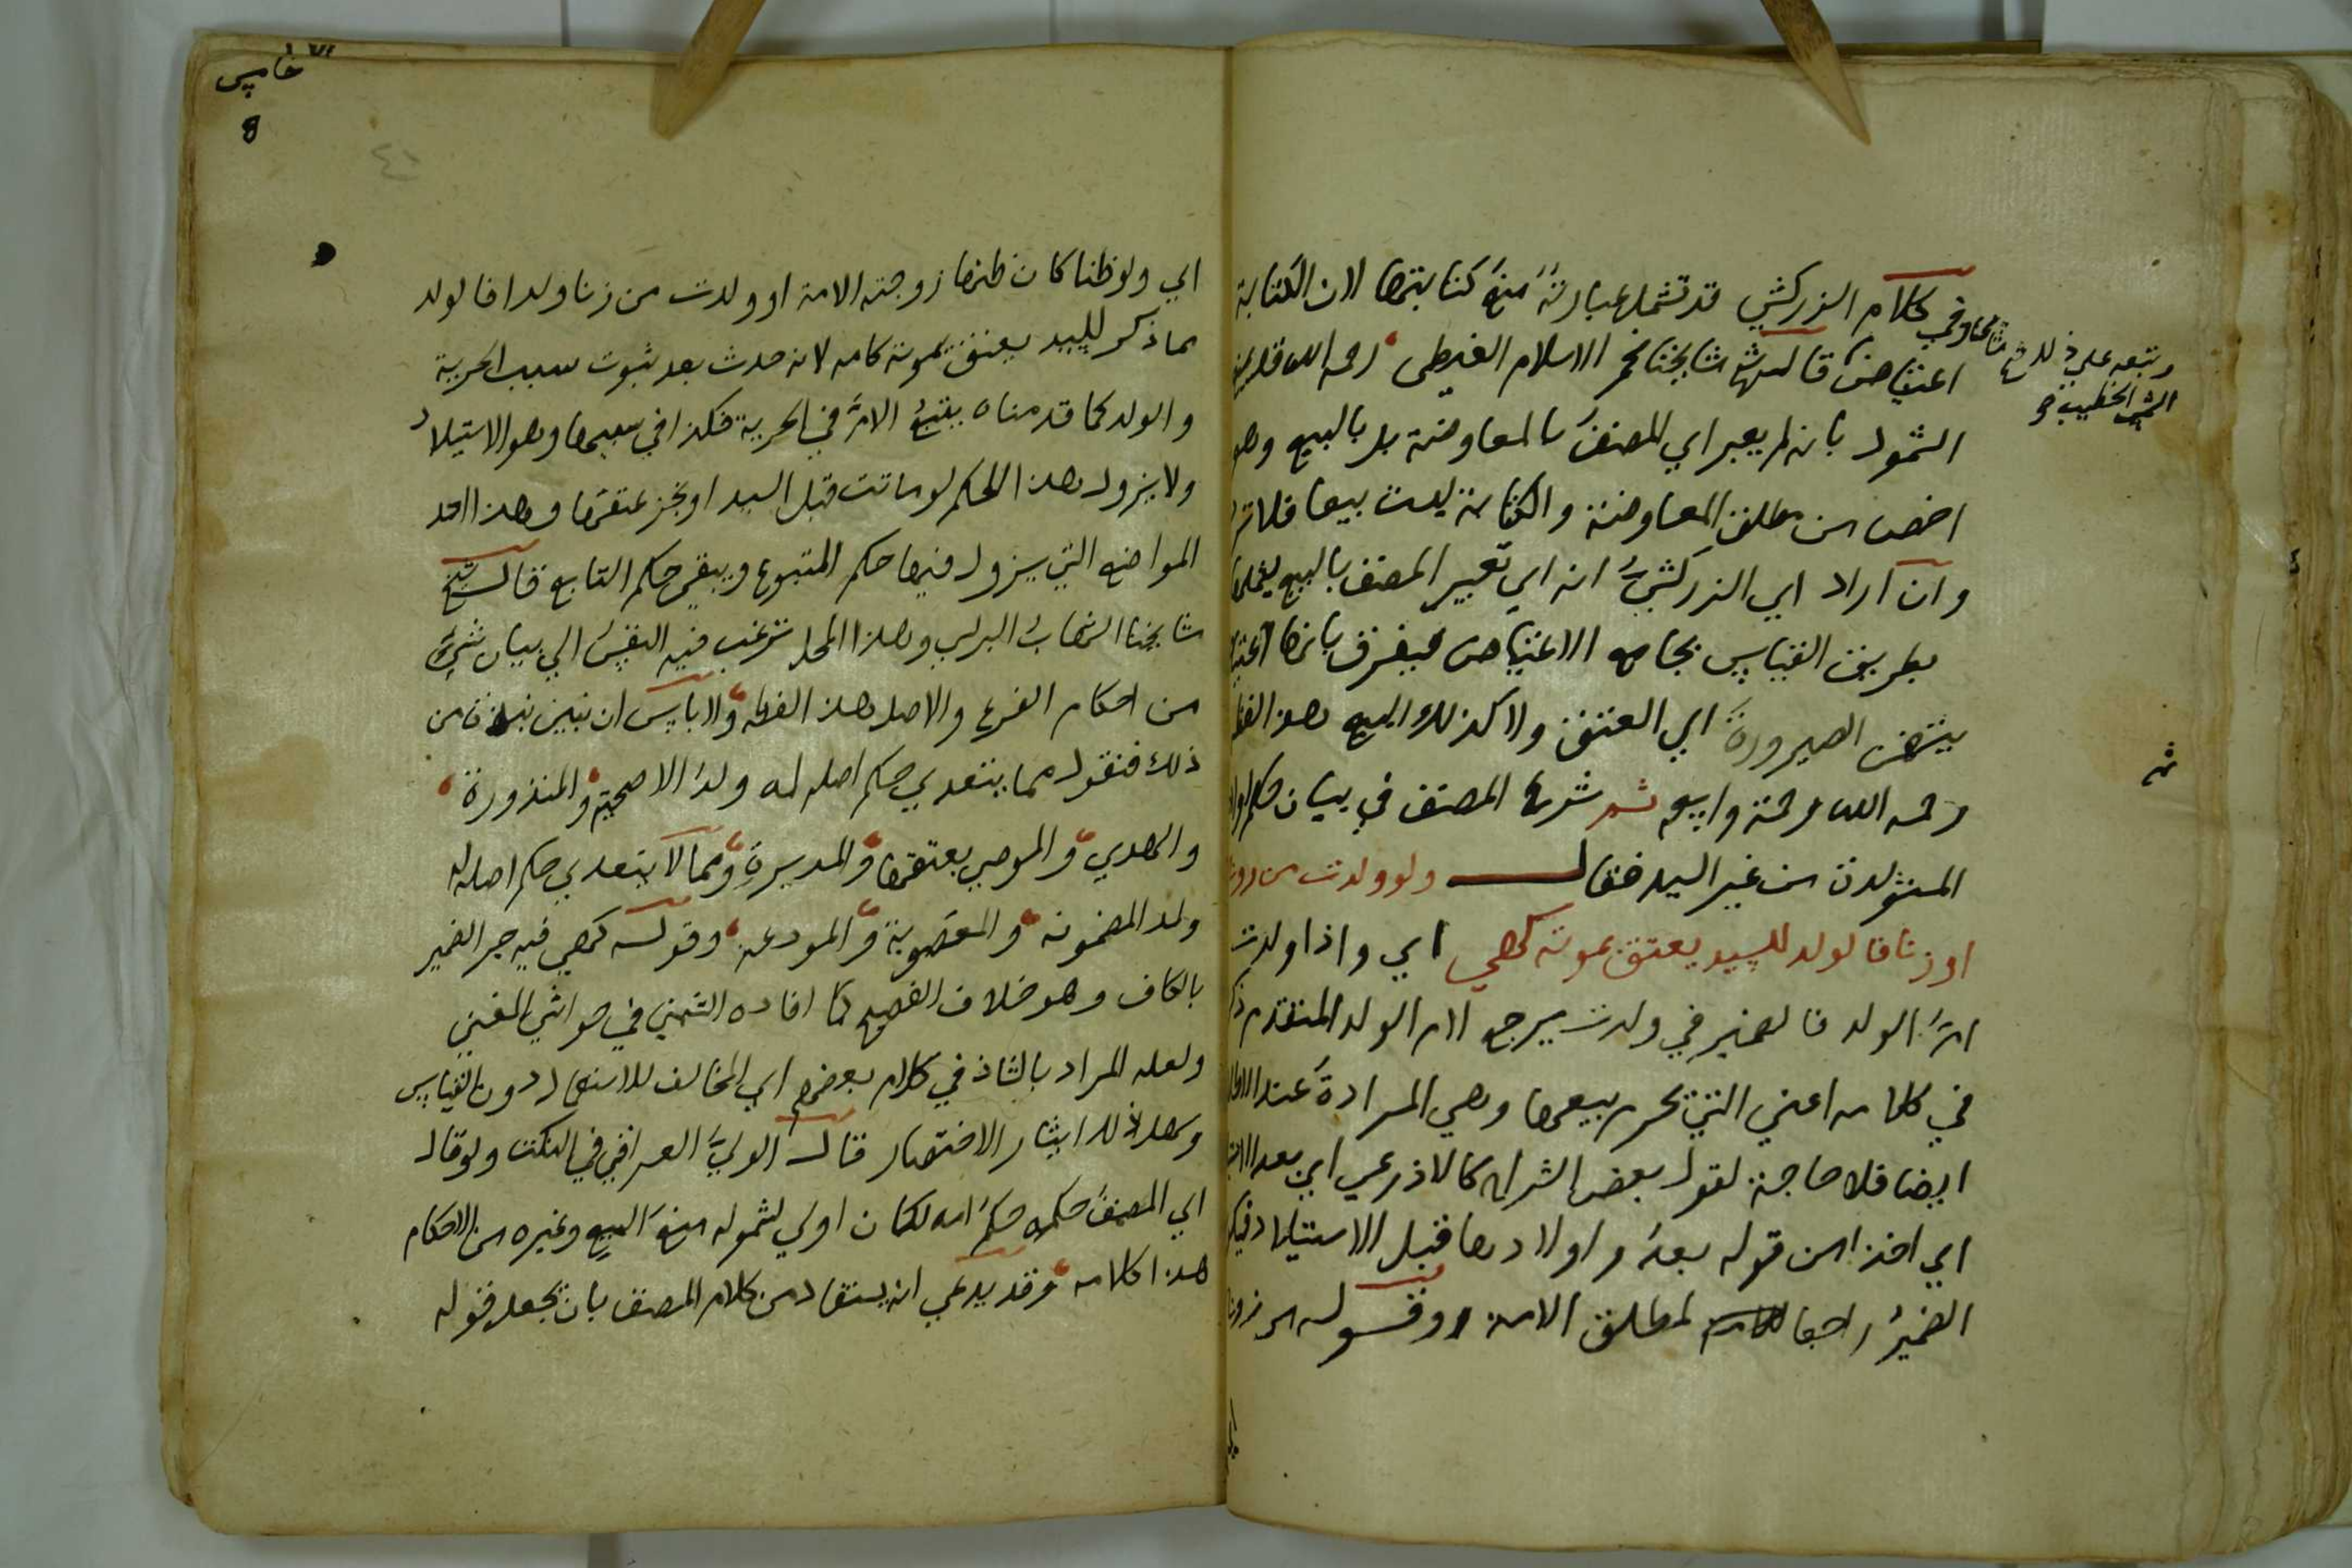 كلام الزركشي قد تشملها عبارته منع كتابتها لان الكتابة
اعتياض قال شيخ مشايخنا فخر الاسلام الغيطي رحمه الله قد يمنع
الشمول بانه لم يعبر اي المصنف بالمعاوضة بل بالبيع وهو
اخص من مطلق المعاوضة والكتابة ليست بيعا فلا
وان اراد اي الزركشي انه اي تعبير المصنف بالبيع يشملها
بطريق القياس بجامع الاعتياض فيفرق بانها
بنقض الصيرورة اي العتق ولا كذلك البيع هذا لفظه
رحمه الله رحمة واسعة ثم شرع المصنف في بيان حكم اولاد
المستولدة من غير السيد فقال ولو ولدت من زوج
او زنا فالولد للسيد يعتق بموته كهي اي واذا ولدت
ام الولد فالضمير في ولدت يرجع لام الولد المتقدم
في كلامه اعني التي تحرم بيعها وهي المرادة عند الاطلاق
ايضا فلا حاجة لقول بعض الشراح كالاذرعي اي بعد
اي اخذا من قوله بعد واولادها قبل الاستيلاد
الضمير راجعا لمطلق الامة وقوله من زوج
وتبعه علي ذلك
الشمس الخطيب
الخامس
٤١
اي ولو ظنا كان ظنها زوجته الامة او ولدت من زنا ولدا فالولد
مما ذكر للسيد يعتق بموته كامه لانه حدث بعد ثبوت سبب الحرية
والولد كما قدمناه يتبع الام في الحرية فكذا في سببها وهو الاستيلاد
ولا يزول هذا الحكم لو ماتت قبل السيد او نجز عتقها وهذا احد
المواضع التي يزول فيها حكم المتبوع ويبقي حكم التابع قال شيخ
مشايخنا الشهاب البرلسي وهذا المحل ترغب فيه النفس الي بيان شيء
من احكام الفرع والاصل هذا لفظه ولا باس ان نبين نبذة من
ذلك فنقول مما يتعدي حكم اصله له ولد الاضحية والمنذورة
والهدي والموصي بعتقها والمدبرة ومما لا يتعدي حكم اصله له
ولد المضمونة والمغصوبة والمودعة وقوله كهي فيه جر الضمير
بالكاف وهو خلاف الفصيح كما افاده الشمني في حواشي المغني
ولعله المراد بالشاذ في كلام بعضهم اي المخالف للاستعمال دون القياس
وكل ذلك ايثار الاختصار قال الولي العراقي في النكت ولو قال
اي المصنف حكمه حكم امه لكان اولي لشموله منع البيع وغيره من الاحكام
هذا كلامه وقد يدعي انه يستفاد من كلام المصنف بان يجعل قوله